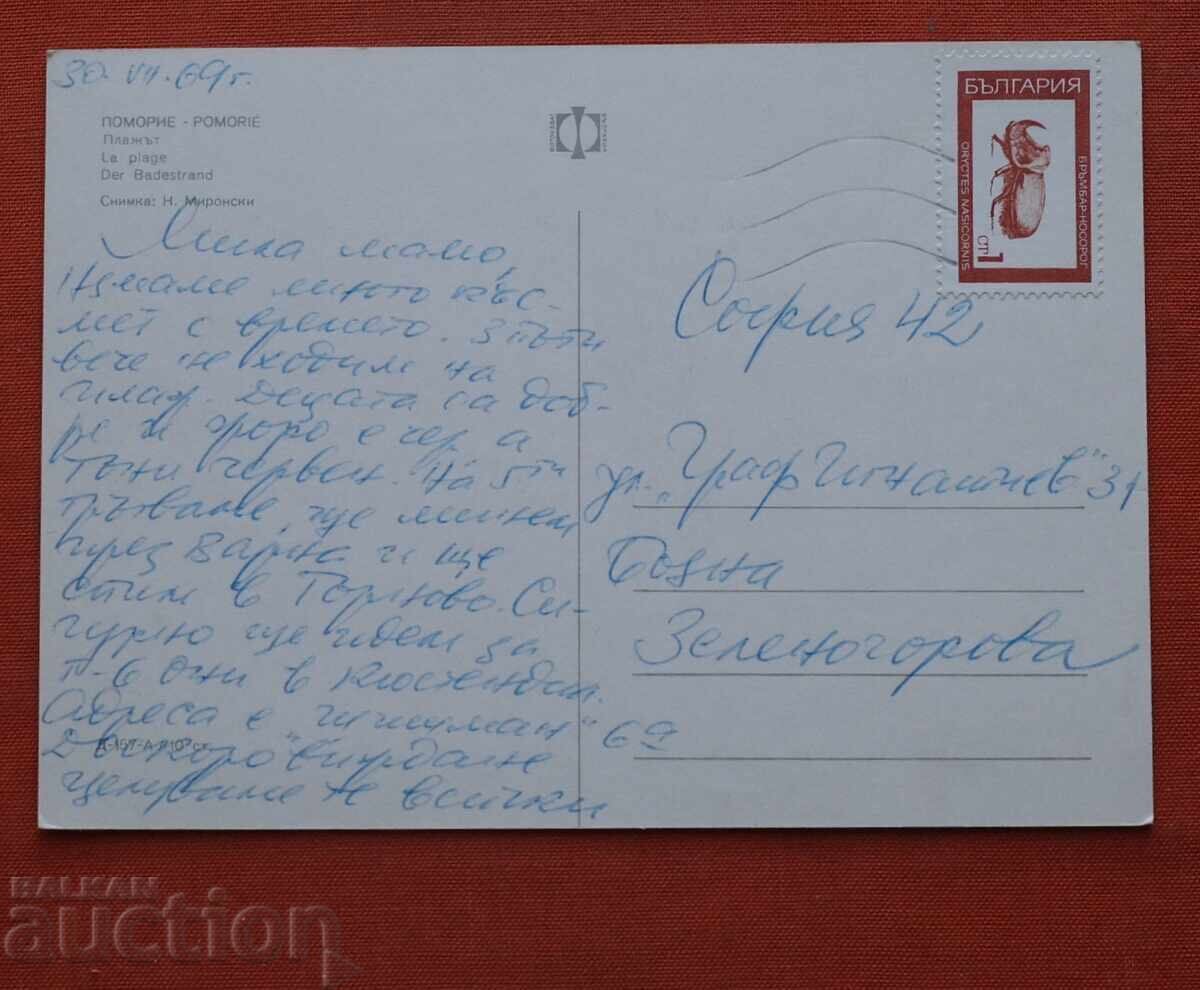 30. VII. 69 г.
ПОМОРИЕ - POMORIE
Плажът
La plage
Der Badestrand
Снимка: Н. Миронски
БЪЛГАРИЯ
ORYCTES NASICORNIS
БРЪМБАР-НОСОРОГ
1 СТ
Мила мамо,
Нямаме много къс-
мет с времето. 3 пъти
вече не ходим на
плаж. Децата са доб-
ре и е чер а
Тони червен. На 5ти
тръгваме, ще минем
през Варна и ще
спим в Търново. Си-
гурно ще идем за
5-6 дни в Кюстендил.
Адреса е "Шишман" 69
До скоро виждане
целуваме те всички
София 42
ул. „Граф Игнатиев" 31
Бояна
Зеленогорова
BALKAN
auction